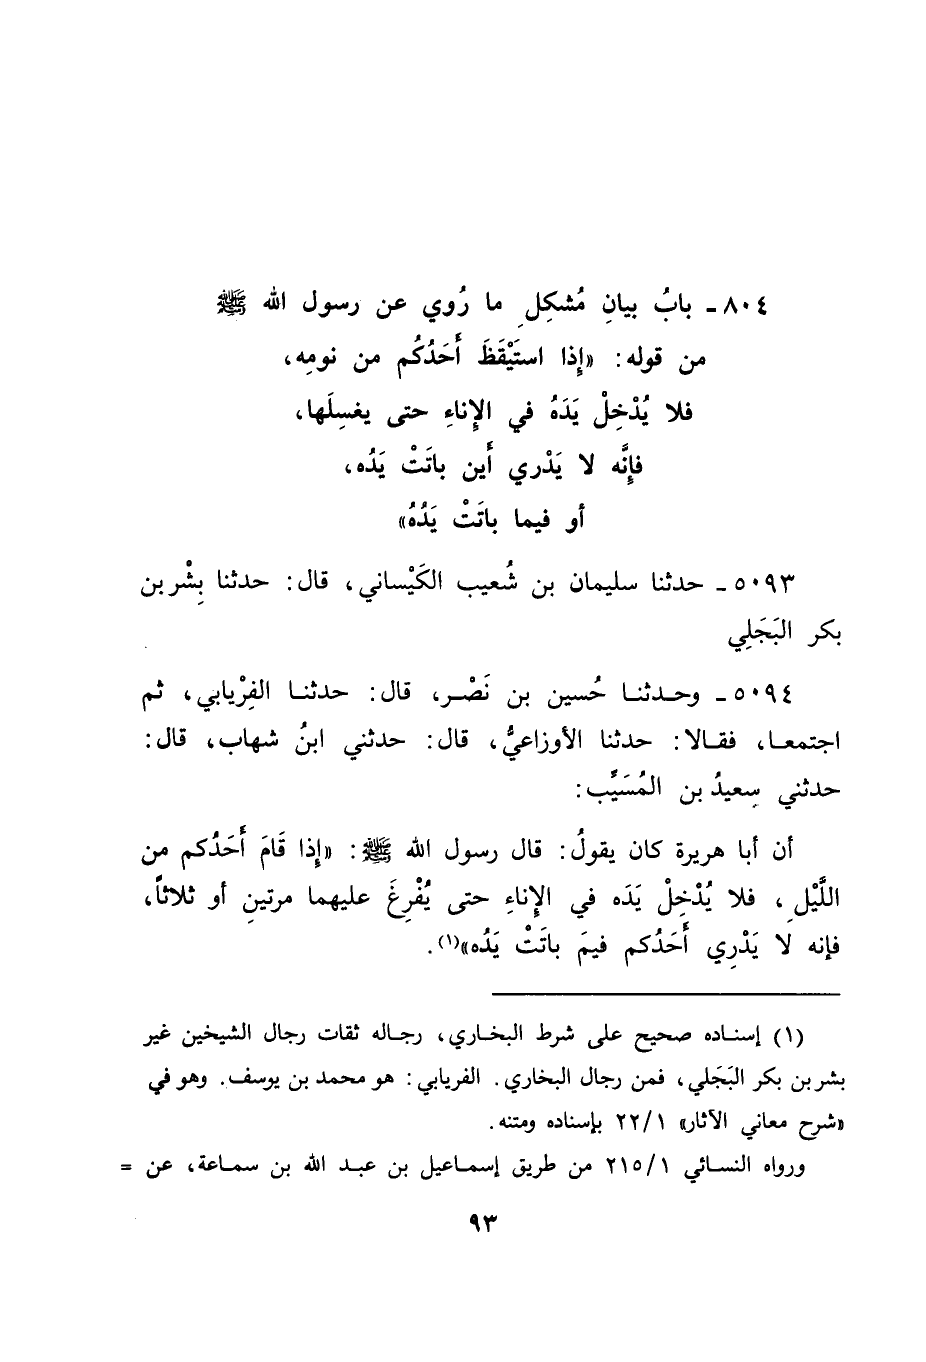 ٨٠٤ - بابُ بيانِ مُشكِلِ ما رُوي عن رسول الله ﷺ
من قوله: «إِذا استَيْقَظَ أَحَدُكُم من نومِه،
فلا يُدْخِلْ يَدَهُ في الإِناءِ حتى يغسِلَها،
فإِنَّه لا يَدْرِي أَين باتَتْ يَدُه،
أو فيما باتَتْ يَدُهُ»
٥٠٩٣ - حدثنا سليمان بن شُعيب الكَيْساني، قال: حدثنا بِشْر بن
بكر البَجَلِي
٥٠٩٤ - وحدثنا حُسين بن نَصْر، قال: حدثنا الفِرْيابي، ثم
اجتمعا، فقالا: حدثنا الأوزاعيُّ، قال: حدثني ابنُ شهاب، قال:
حدثني سِعيدُ بن المُسَيَّب:
أن أبا هريرة كان يقولُ: قال رسول الله ﷺ: «إِذا قَامَ أَحَدُكم من
اللَّيْلِ، فلا يُدْخِلْ يَدَه في الإِناءِ حتى يُفْرِغَ عليهما مرتينِ أو ثلاثاً،
فإنه لا يَدْرِي أَحَدُكم فيمَ باتَتْ يَدُه»(١).
(١) إسناده صحيح على شرط البخاري، رجاله ثقات رجال الشيخين غير
بشر بن بكر البَجَلي، فمن رجال البخاري. الفريابي: هو محمد بن يوسف. وهو في
«شرح معاني الآثار» ٢٢/١ بإسناده ومتنه.
ورواه النسائي ٢١٥/١ من طريق إسماعيل بن عبد الله بن سماعة، عن =
٩٣